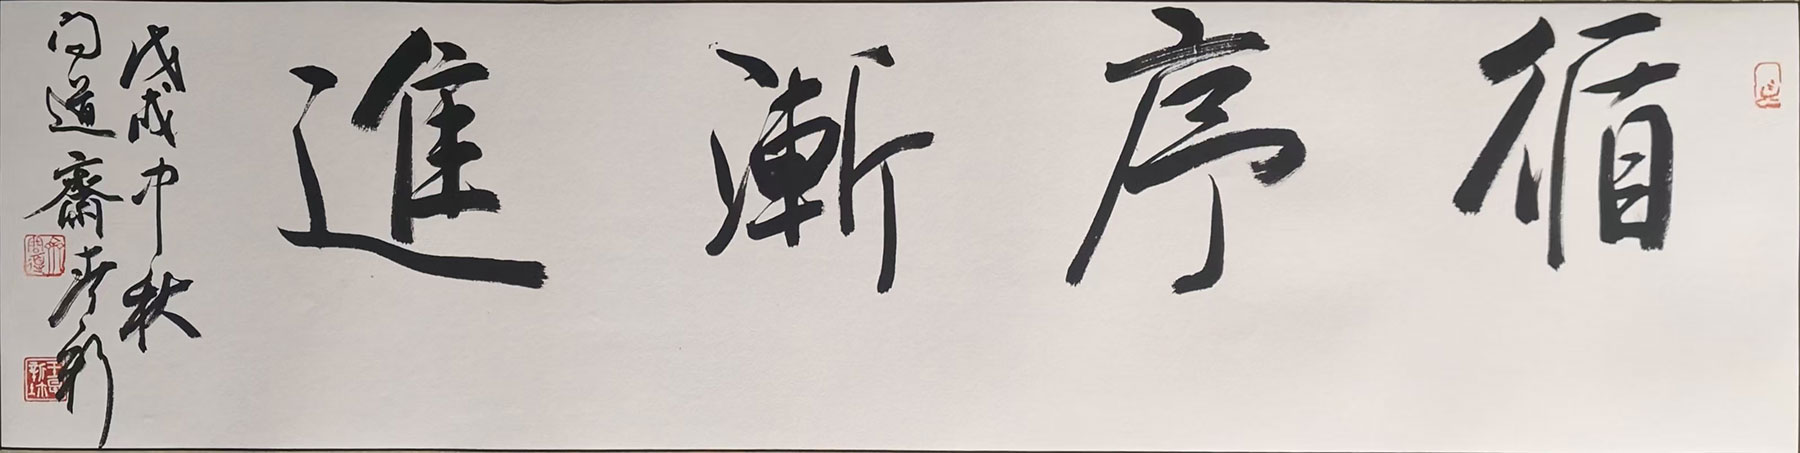 循序漸進
戊戌中秋
問道齋 新